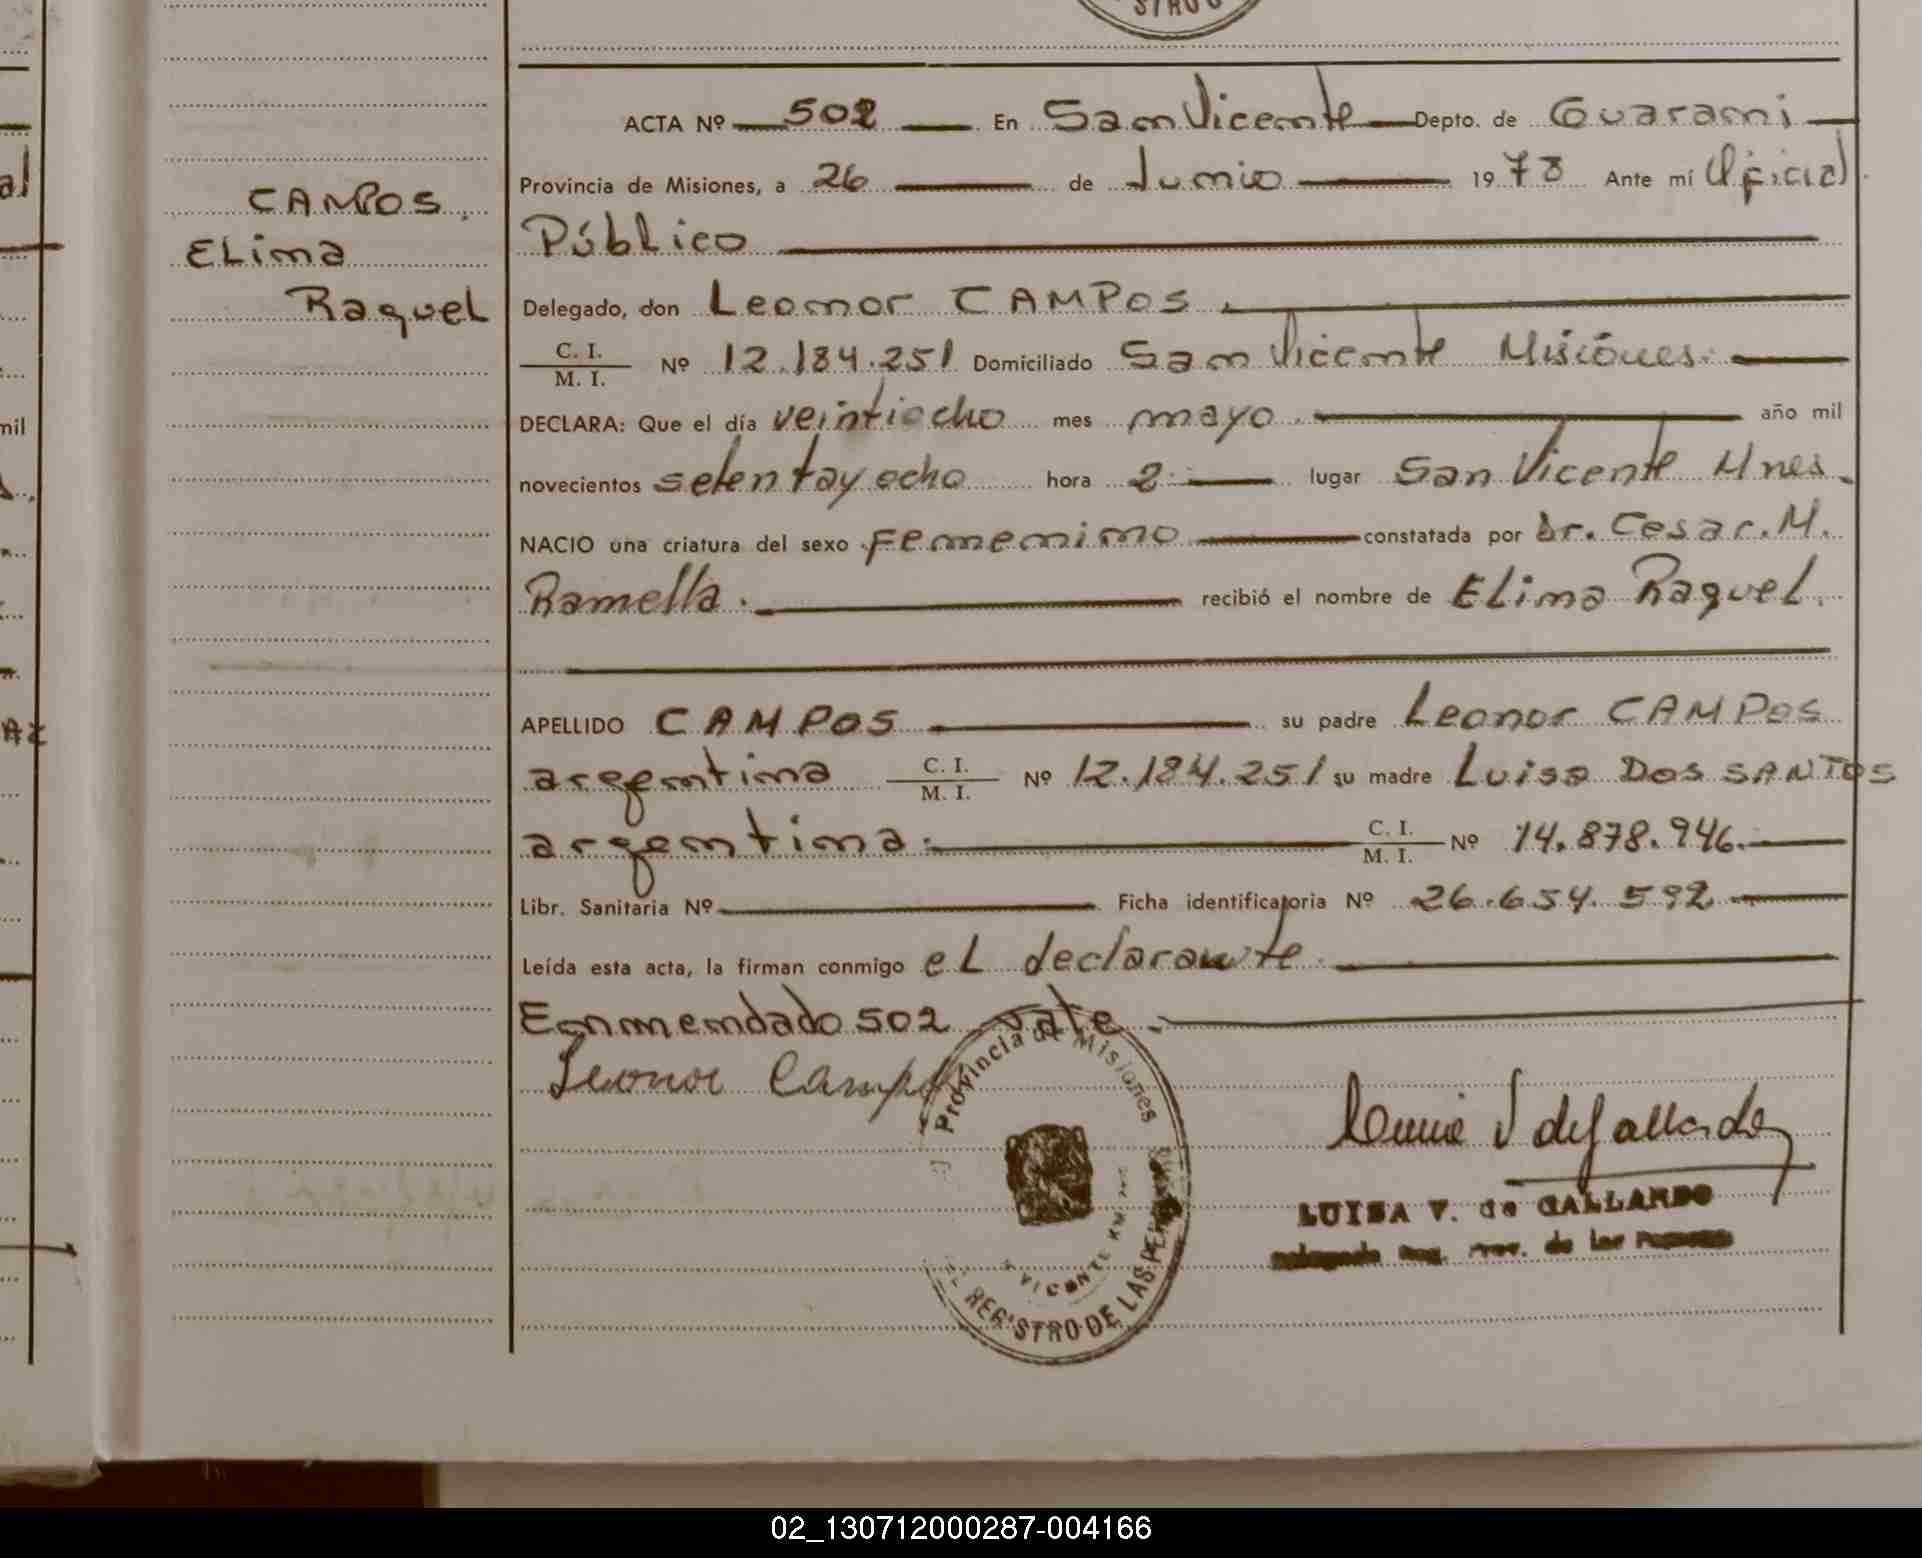 STRO D
ACTA Nº 502 En San Vicente Depto. de Guarani
Provincia de Misiones, a 26 de Junio 1978 Ante mí Oficial
Público
CAMPOS
ELima
Raquel
Delegado, don Leonor CAMPOS
C. I.
M. I. Nº 12.184.251 Domiciliado San Vicente Misiones.
DECLARA: Que el día veintiocho mes mayo año mil
novecientos setenta y ocho hora 2 lugar San Vicente Mnes
NACIO una criatura del sexo Femenino constatada por Dr. Cesar. M.
Ramella. recibió el nombre de ELima Raquel.
APELLIDO CAMPOS su padre Leonor CAMPOS
argentina C. I.
M. I. Nº 12.184.251 su madre Luisa DOS SANTOS
argentina. C. I.
M. I. Nº 14.878.946.
Libr. Sanitaria Nº Ficha identificatoria Nº 26.654.592
Leída esta acta, la firman conmigo el declarante.
Enmendado 502 vale.
Leonor Campos
Provincia de Misiones
VICENTE KM
REGISTRO DE LAS PER
LUISA V. de GALLARDO
de las
mil
al
AZ
02_130712000287-004166